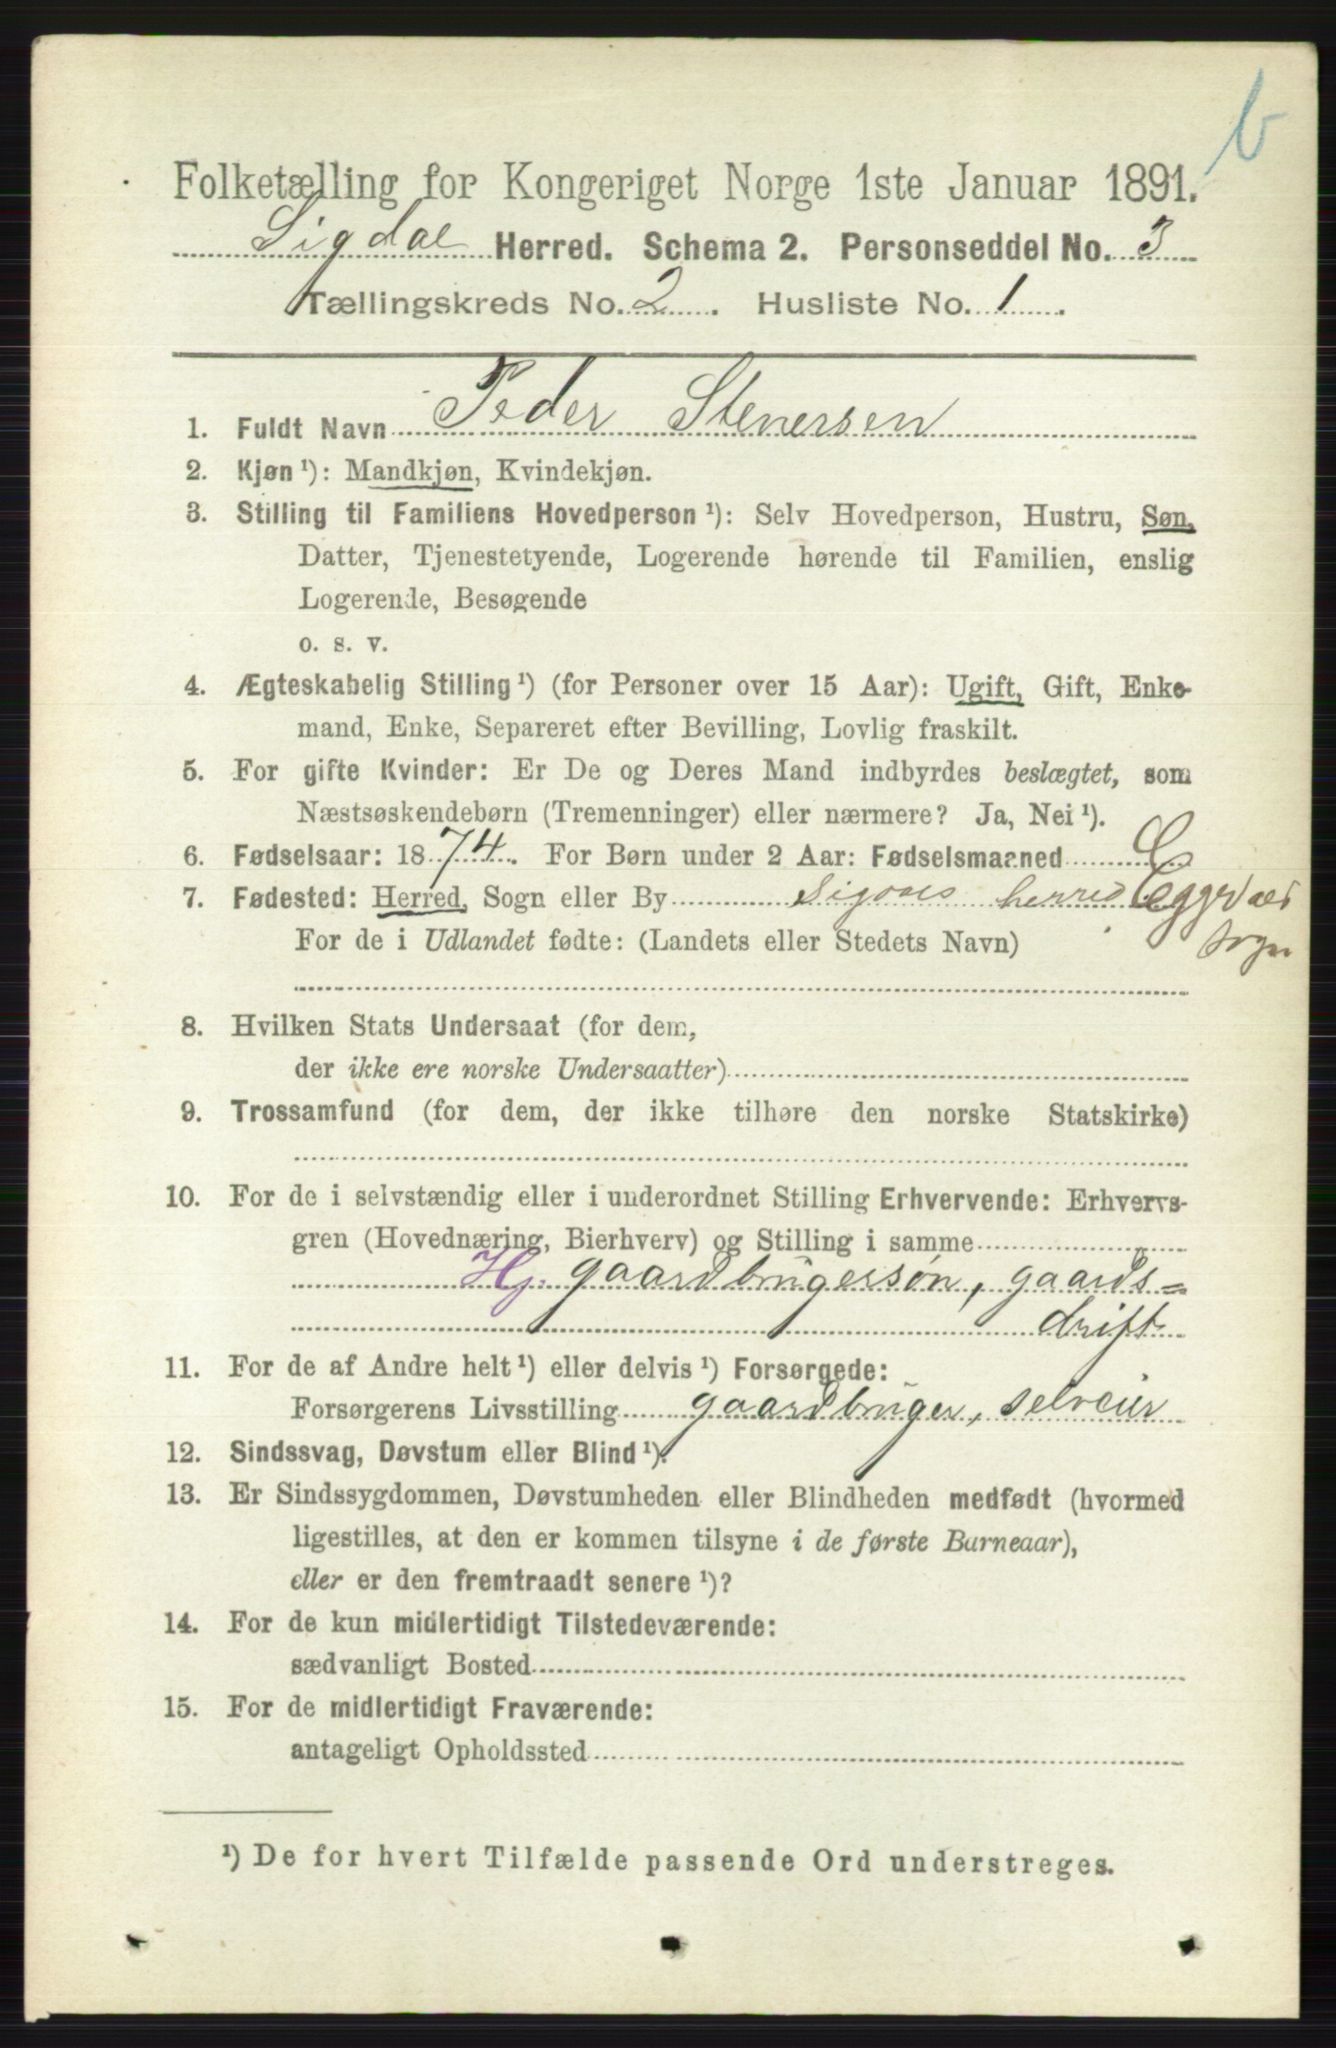 b
Folketælling for Kongeriget Norge 1ste Januar 1891.
Sigdal Herred. Schema 2. Personseddel No. 3
Tællingskreds No. 2. Husliste No. 1.
1. Fuldt Navn Peder Stenersen
2. Kjøn ¹): Mandkjøn, Kvindekjøn.
3. Stilling til Familiens Hovedperson ¹): Selv Hovedperson, Hustru, Søn,
Datter, Tjenestetyende, Logerende hørende til Familien, enslig
Logerende, Besøgende
o. s. v.
4. Ægteskabelig Stilling ¹) (for Personer over 15 Aar): Ugift, Gift, Enke-
mand, Enke, Separeret efter Bevilling, Lovlig fraskilt.
5. For gifte Kvinder: Er De og Deres Mand indbyrdes beslægtet, som
Næstsøskendebørn (Tremenninger) eller nærmere? Ja, Nei ¹).
6. Fødselsaar: 1874. For Børn under 2 Aar: Fødselsmaaned
7. Fødested: Herred, Sogn eller By Sigdals herred Eggedal
sogn
For de i Udlandet fødte: (Landets eller Stedets Navn)
8. Hvilken Stats Undersaat (for dem,
der ikke ere norske Undersaatter)
9. Trossamfund (for dem, der ikke tilhøre den norske Statskirke)
10. For de i selvstændig eller i underordnet Stilling Erhvervende: Erhvervs-
gren (Hovednæring, Bierhverv) og Stilling i samme
Hj. gaardbrugersøn, gaards=
drift
11. For de af Andre helt ¹) eller delvis ¹) Forsørgede:
Forsørgerens Livsstilling gaardbruger, selveier
12. Sindssvag, Døvstum eller Blind ¹).
13. Er Sindssygdommen, Døvstumheden eller Blindheden medfødt (hvormed
ligestilles, at den er kommen tilsyne i de første Barneaar),
eller er den fremtraadt senere ¹)?
14. For de kun midlertidigt Tilstedeværende:
sædvanligt Bosted
15. For de midlertidigt Fraværende:
antageligt Opholdssted
¹) De for hvert Tilfælde passende Ord understreges.